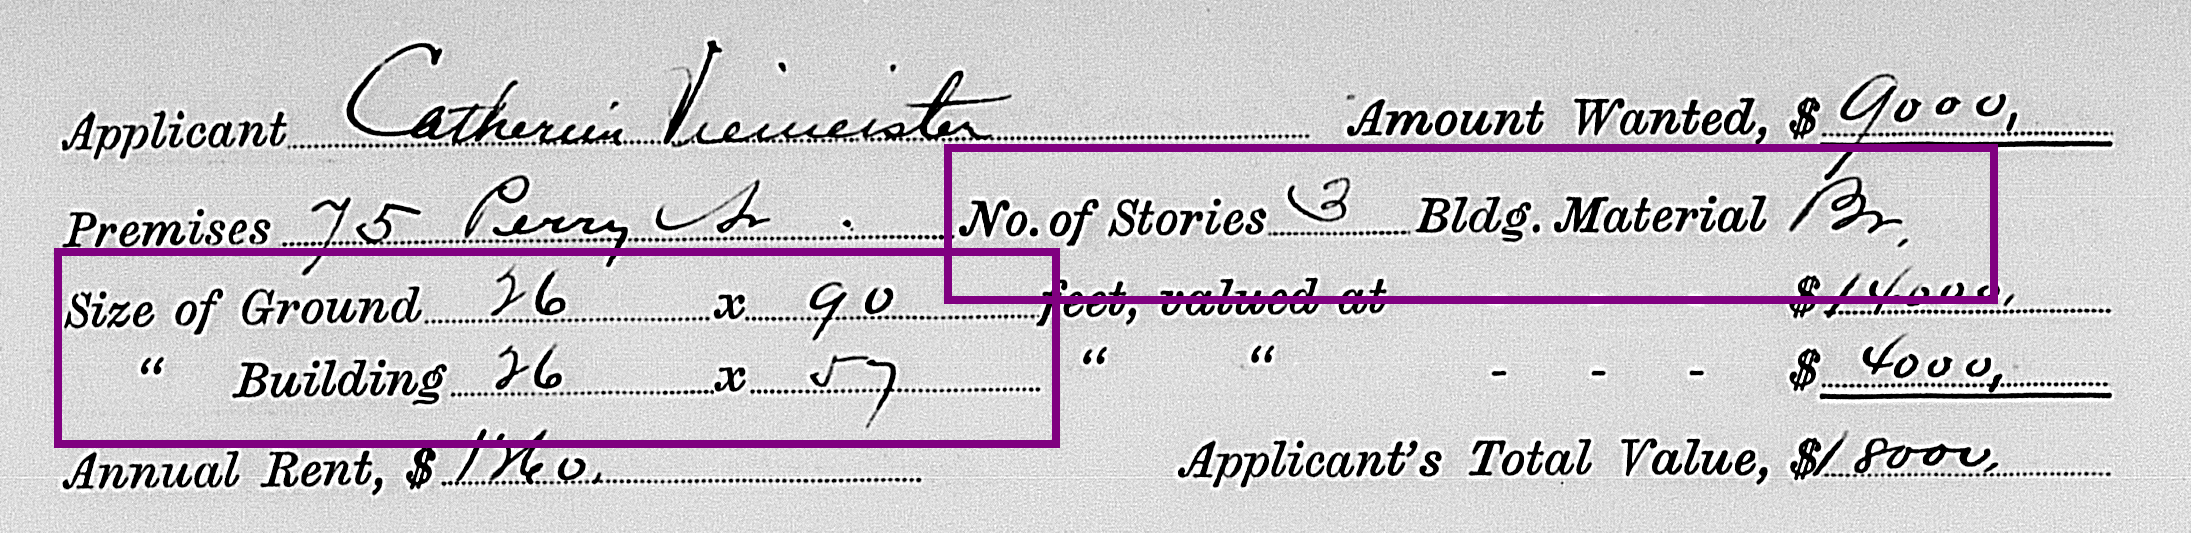 Applicant Catherin Viemeister Amount Wanted, $ 9000,
Premises 75 Perry St. No. of Stories 3 Bldg. Material Br.
Size of Ground 26 x 90 feet, valued at $14000,
“ Building 26 x 57 “ “ - - - $ 4000,
Annual Rent, $ Applicant's Total Value, $18000,